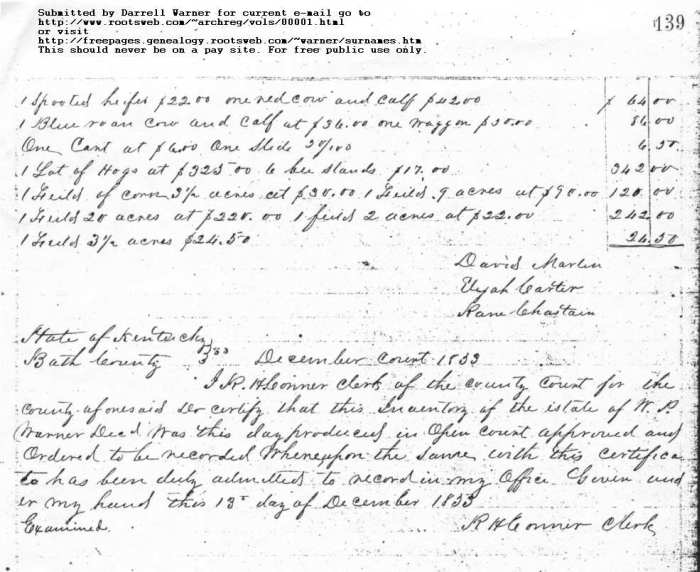 Submitted by Darrell Warner for current e-mail go to
http://www.rootsweb.com/~archreg/vols/00001.html
or visit
http://freepages.genealogy.rootsweb.com/~warner/surnames.htm
This should never be on a pay site. For free public use only.
139
1 Spooted heifer $22.00 one red cow and calf $42.00 $ 64 00
1 Blue roan cow and calf at $36.00 one waggon $50.00 86 00
One Cart at $6.00 One Slide 50/00 6.50
1 Lot of Hogs at $325 00 6 bee stands $17.00 342 00
1 Feild of corn 3½ acres at $30.00 1 Feild 9 acres at $90.00 120 00
1 Feild 20 acres at $220.00 1 feild 2 acres at $22.00 242 00
1 Feild 3½ acres $24.50 24.50
David Marlin
Elijah Carter
Rane Chastain
State of Kentucky
Bath County December Court 1833
I R. H Conner Clerk of the county Court for the
county aforesaid do certify that this Inventory of the istate of W. P.
Warner Decd Was this day produced in Open court approved and
Ordered to be recorded Whereupon the same with this certifica
te has been duly admitted to record in my Office Given und
er my hand this 13th day of December 1833
Examined. R H Conner Clerk